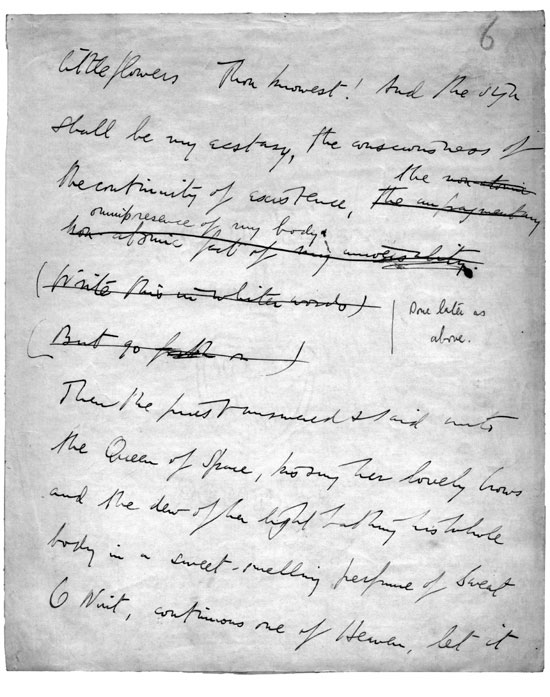 6
little flowers Thou knowest! And the sign
shall be my ecstasy, the consciousness of
the continuity of existence, the unfragmentary
the non-atomic
omnipresence of my body.
non-atomic fact of my universality.
(Write this in whiter words)
Done later as
above.
(But go forth on)
Then the priest answered & said unto
the Queen of Space, kissing her lovely brows
and the dew of her light bathing his whole
body in a sweet-smelling perfume of sweat
O Nuit, continuous one of Heaven, let it